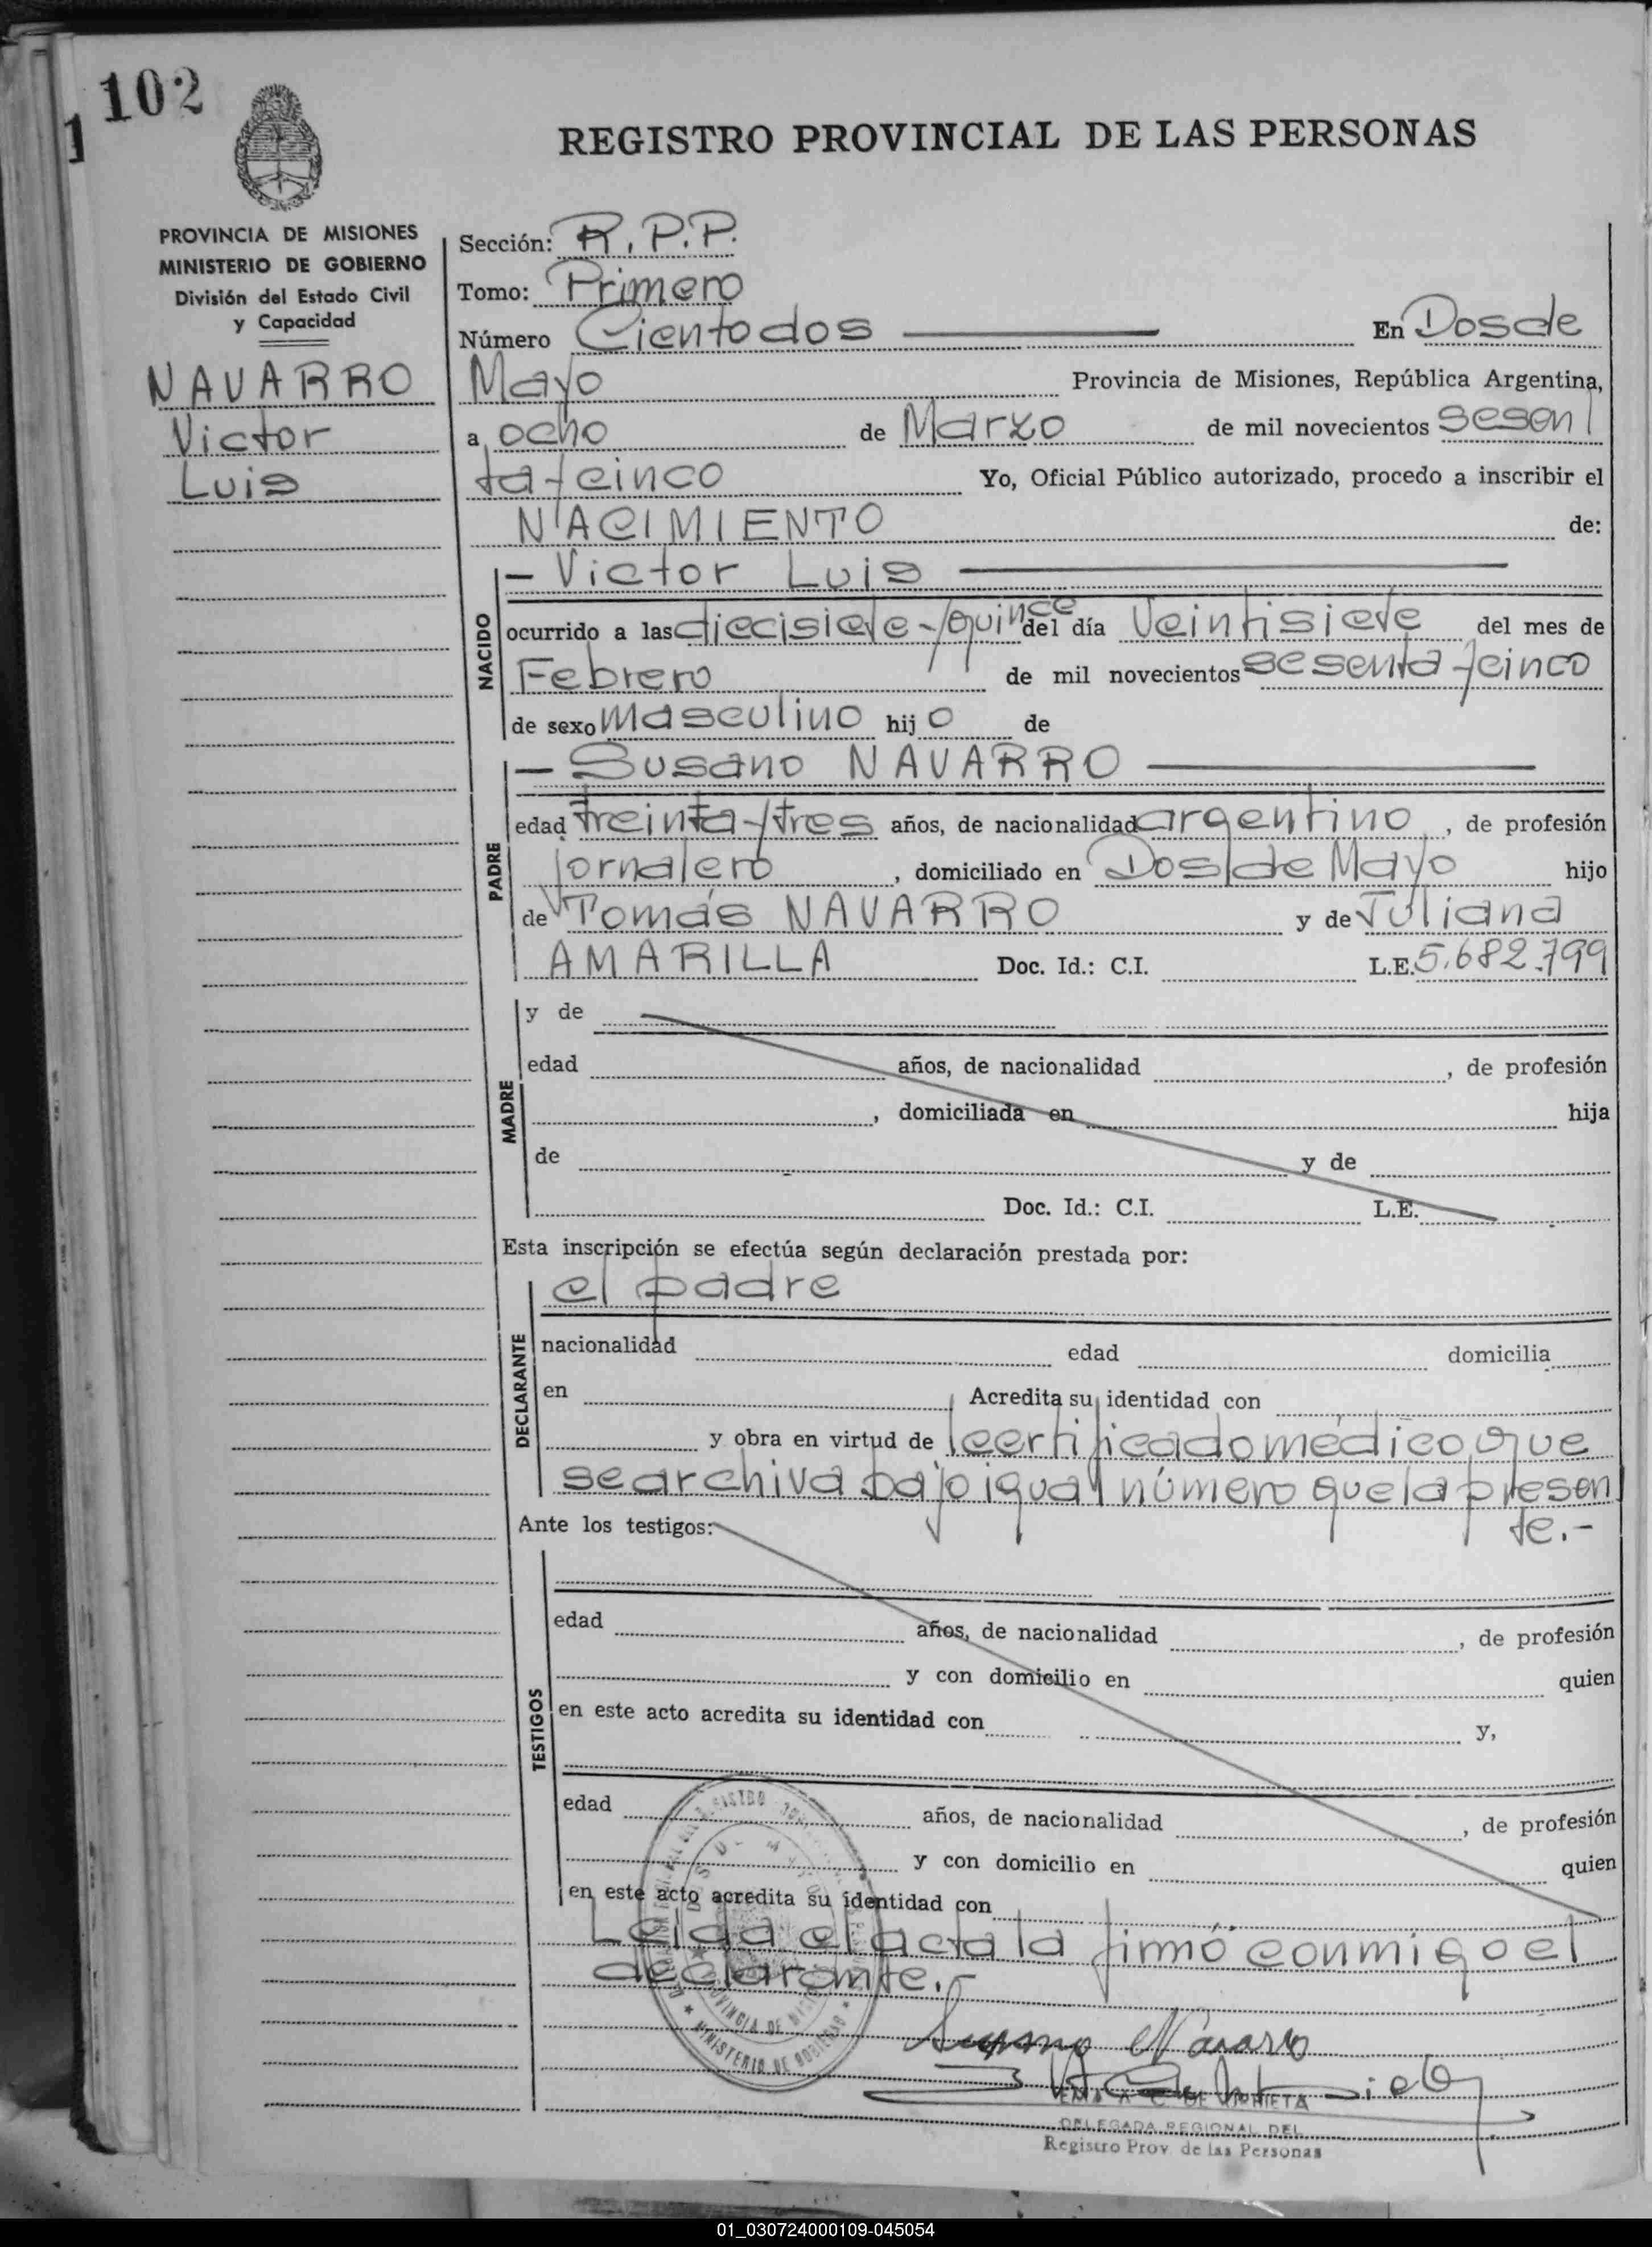 102
1
REGISTRO PROVINCIAL DE LAS PERSONAS
PROVINCIA DE MISIONES
MINISTERIO DE GOBIERNO
División del Estado Civil
y Capacidad
NAVARRO
Victor
Luis
Sección: R.P.P.
Tomo: Primero
Número Ciento dos En Dos de
Mayo Provincia de Misiones, República Argentina,
a ocho de Marzo de mil novecientos sesen
ta y cinco Yo, Oficial Público autorizado, procedo a inscribir el
NACIMIENTO de:
NACIDO
— Victor Luis
ocurrido a las diecisiete y quince del día veintisiete del mes de
Febrero de mil novecientos sesenta y cinco
de sexo masculino hijo de
PADRE
— Susano NAVARRO
edad treinta y tres años, de nacionalidad argentino, de profesión
jornalero, domiciliado en Dos de Mayo hijo
de Tomás NAVARRO y de Juliana
AMARILLA Doc. Id.: C.I. L.E. 5.682.799
MADRE
y de
edad años, de nacionalidad , de profesión
, domiciliada en hija
de y de
Doc. Id.: C.I. L.E.
Esta inscripción se efectúa según declaración prestada por:
DECLARANTE
el padre
nacionalidad edad domicilia
en Acredita su identidad con
y obra en virtud de certificado médico que
se archiva bajo igual número que la presen
te.-
Ante los testigos:
TESTIGOS
edad años, de nacionalidad , de profesión
y con domicilio en quien
en este acto acredita su identidad con y,
edad años, de nacionalidad , de profesión
y con domicilio en quien
en este acto acredita su identidad con
Leída el acta la firmó conmigo el
declarante.-
Susano Navarro
PROVINCIA DE MISIONES
MINISTERIO DE GOBIERNO
DELEGADA REGIONAL DEL
Registro Prov. de las Personas
01_030724000109-045054